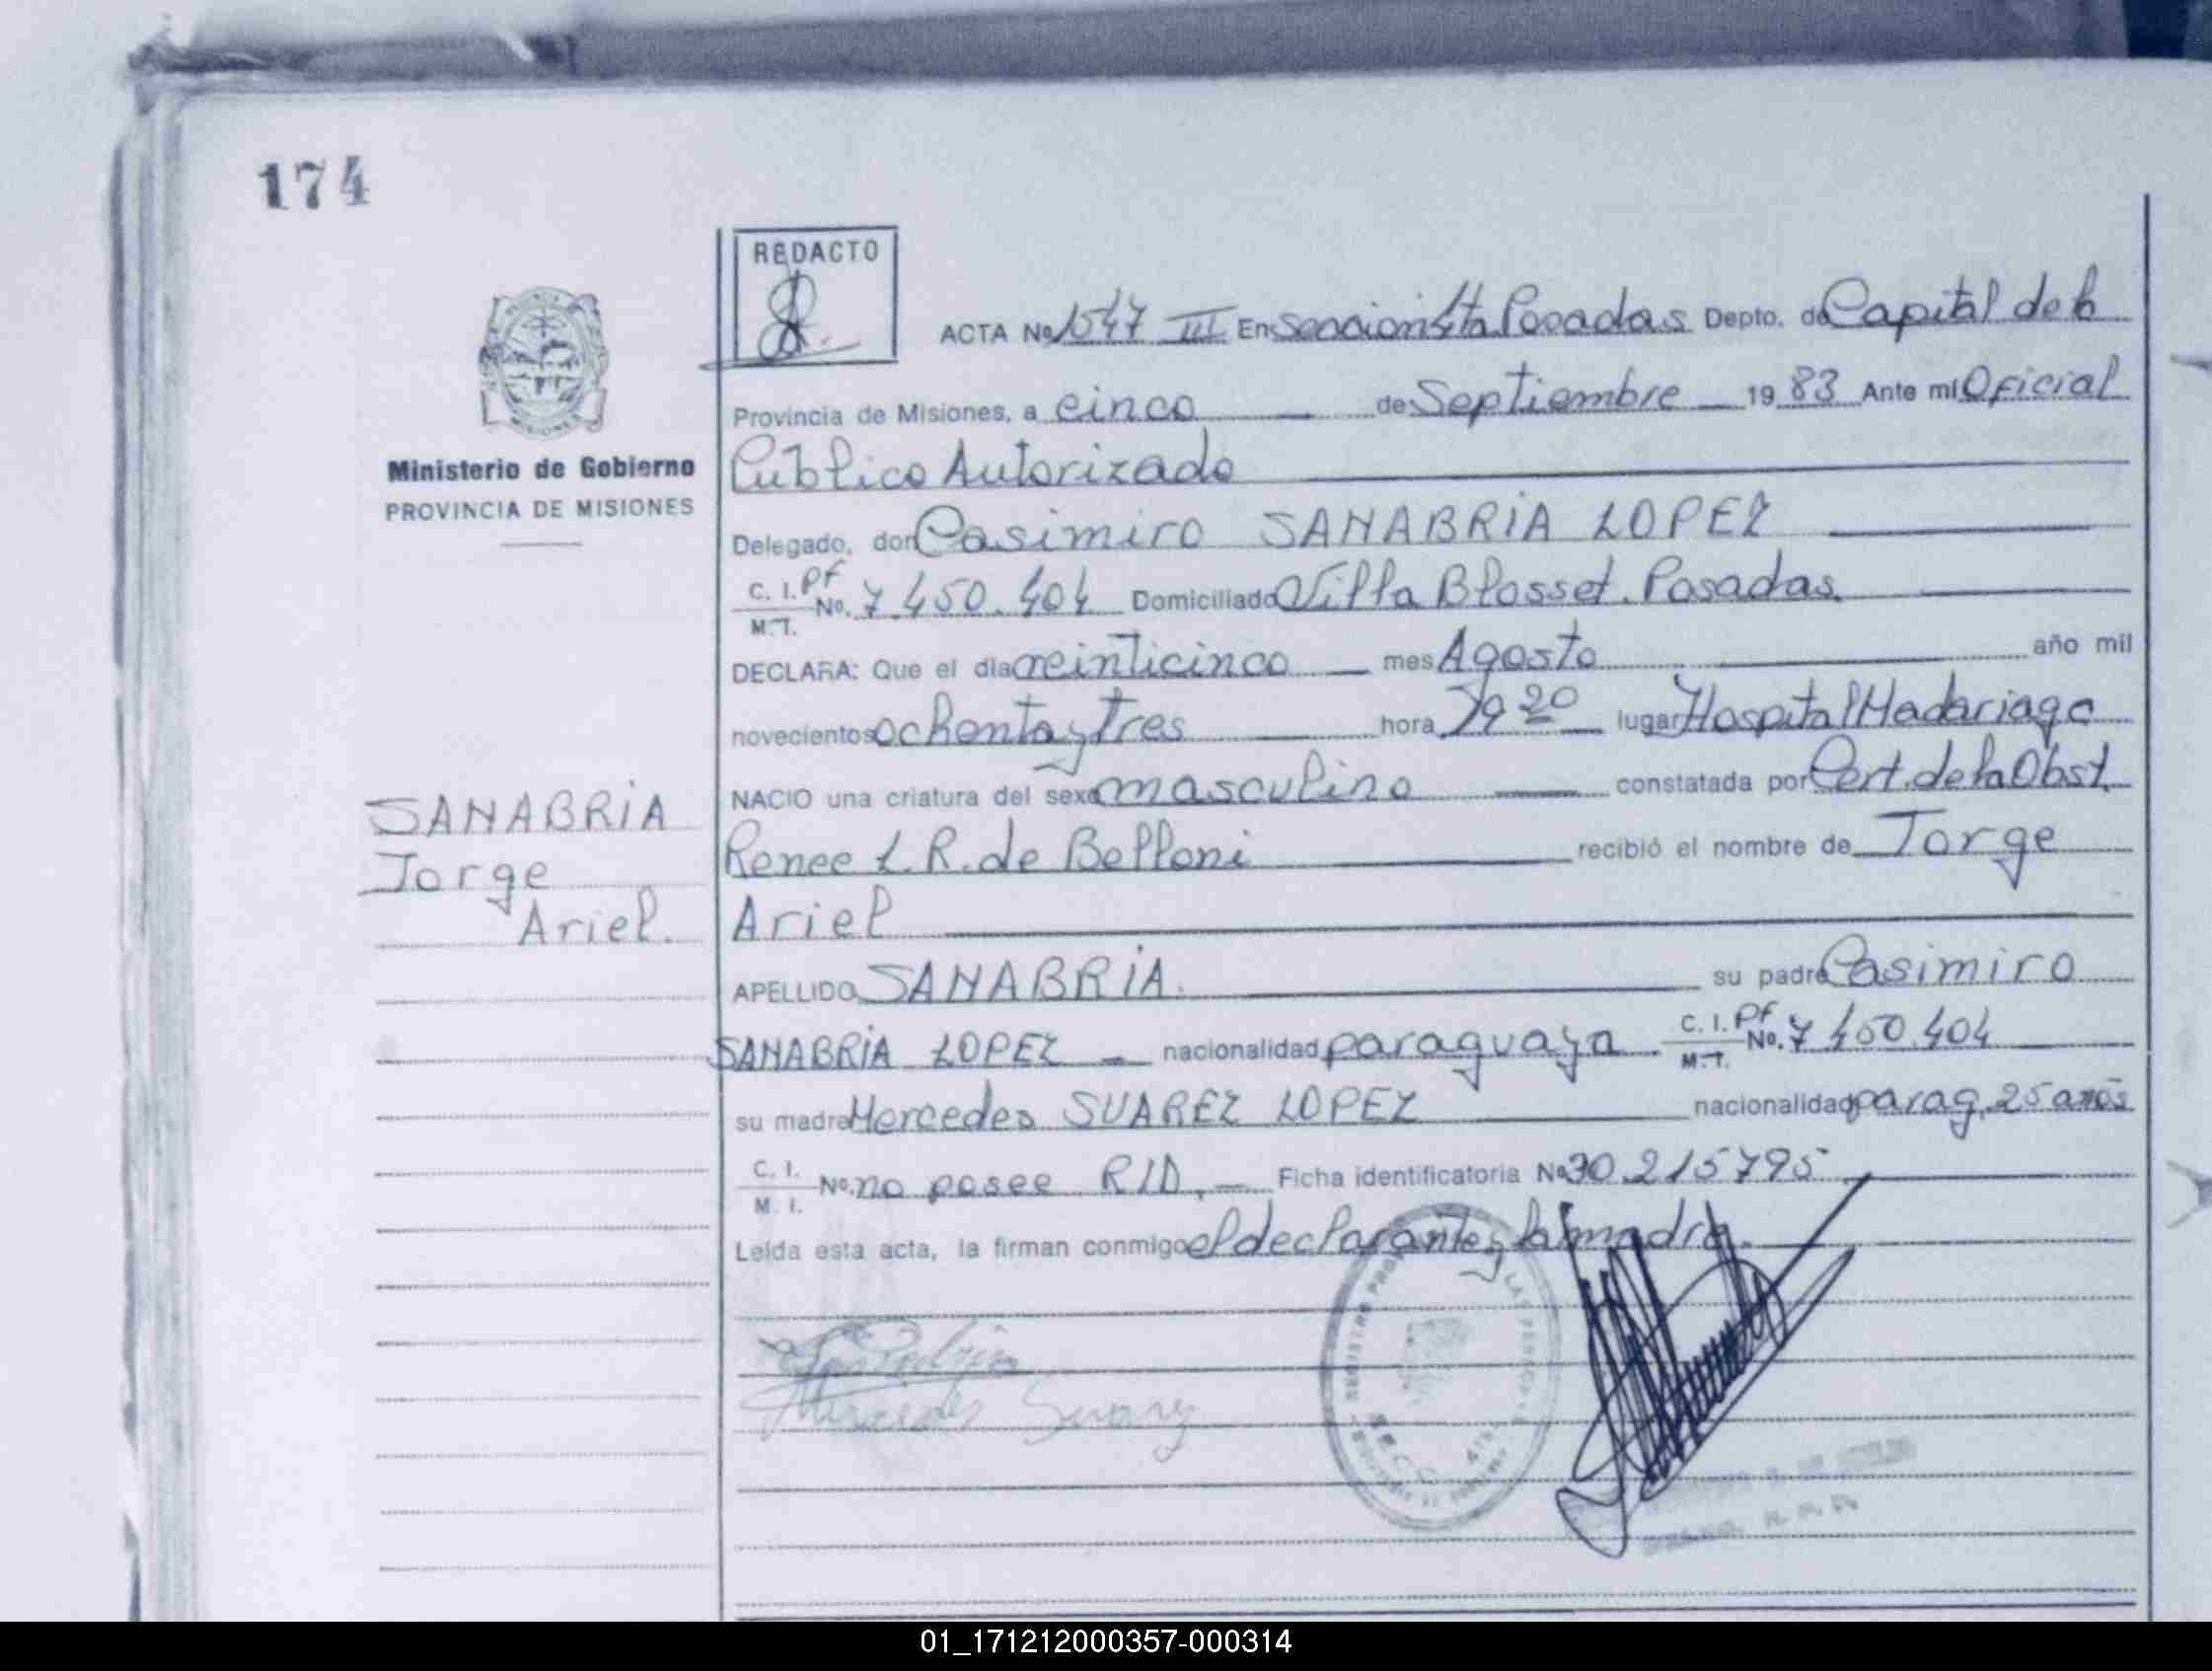 174
REDACTO
ACTA No 1547 III En Seccion 4ta Posadas Depto. de Capital de la
Provincia de Misiones, a cinco de Septiembre 1983 Ante mí Oficial
Ministerio de Gobierno
PROVINCIA DE MISIONES
Publico Autorizado
Delegado, don Casimiro SANABRIA LOPEZ
C. I. PF No. 7.450.404 Domiciliado Villa Blosset. Posadas.
M. I.
DECLARA: Que el día veinticinco mes Agosto año mil
novecientos ochenta y tres hora 19 20 lugar Hospital Madariaga
NACIO una criatura del sexo masculino constatada por Cert. de la Obst.
Renee L. R. de Belloni recibió el nombre de Jorge
Ariel
SANABRIA
Jorge
Ariel.
APELLIDO SANABRIA. su padre Casimiro
SANABRIA LOPEZ nacionalidad paraguaya C. I. PF No. 7.450.404
M. I.
su madre Mercedes SUAREZ LOPEZ nacionalidad parag. 25 años
C. I. No. no posee R/D. Ficha identificatoria No 30.215795
M. I.
Leída esta acta, la firman conmigo el declarante y la madre.
Mercedes Suarez
01_171212000357-000314